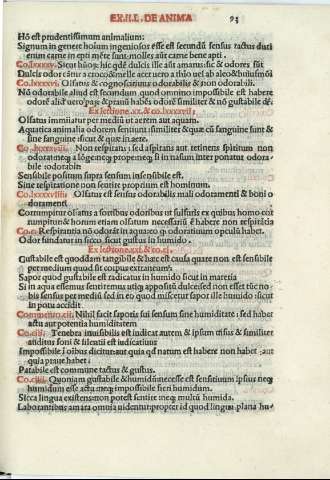 EX.II.L. DE ANIMA 93
Hō est prudentissimum animalium:
Signum in genere hoium ingeniosos esse est secundū sensus tactus duri
enim carne in epti mēte sunt: molles aūt carne bene apti.
Co. lxxxxv. Sicut huiōz: hic qdē dulcis ille aūt amarus: sic & odores sūt
Dulcis odor cātur a croco & melle acer uero a thio uel ab aleo & huiusmōi
Co. lxxxxvi. Olfatus & cognoscitimus odorabilis & non odorabili.
Nō odorabile aliud est secundum quod omnino impossibile est habere
odorē aliud uero paꝝ & prauū habēs odorē similiter & nō gustabile dr.
Ex lectione .xx. et co. lxxxxvii.
Olfatus immutatur per mediū ut aerem aut aquam.
Aquatica animalia odorem sentiunt: similiter & quæ cū sanguine sunt &
sine sanguine sicut & quæ in aere.
Co. Non respirans: sed aspirans aut retinens spiritum non
odorat neq; a lōge neq; prope neq; si in nasum inter ponatur odorabile
Sensibile positum supra sensum insensibile est.
Sine respiratione non sentire proprium est hominum.
Co. lxxxxviiii Olfatus est sensus odorabilis mali odoramenti & boni odoramenti
Corrumpitur olfatus a fortibus odoribus ut sulfuris ex quibus homo corrumpitur
& horum etiam olfatum necessariū ē habere non respirātia
Co. c. Respirantia nō odorāt in aqua eo q odoratiuum opculū habet.
Odor fundatur in sicco sicut gustus in humido.
Ex lectione .xxi. & co. ci.
Gustabile est quoddam tangibile & hæc est causa quare non est sensibile
per medium quod sit corpus extraneum.
Sapor quod gustabile est radicatur in humido sicut in materia
Si in aqua essemus sentiremus utiq; appositū dulce: sed non esset tūc nobis
sensus per mediū sed in eo quod misceretur sapor ille humido sicut
in potu accidit
Commento. cii. Nihil facit saporis sui sensum sine humiditate: sed habet
actu aut potentia humiditatem
Co. ciii. Tenebra inuisibilis est indicat autem & ipsum uisus & similiter
auditus soni & silentii est iudicatiuus
Impossibile ī oībus dicitur: aut quia qd natum est habere non habet: aut
quia praue habet:
Potabile est commune tactus & gustus.
Co. ciiii. Quoniam gustabile & humidū necesse est sensitiuum ipsius neq;
humidum esse actu neq; impossibile fieri humidum.
Sicca lingua existens non potest sentire neq; multū humida.
Laborantibus amara omnia uidentur propter id quod lingua plana hu-